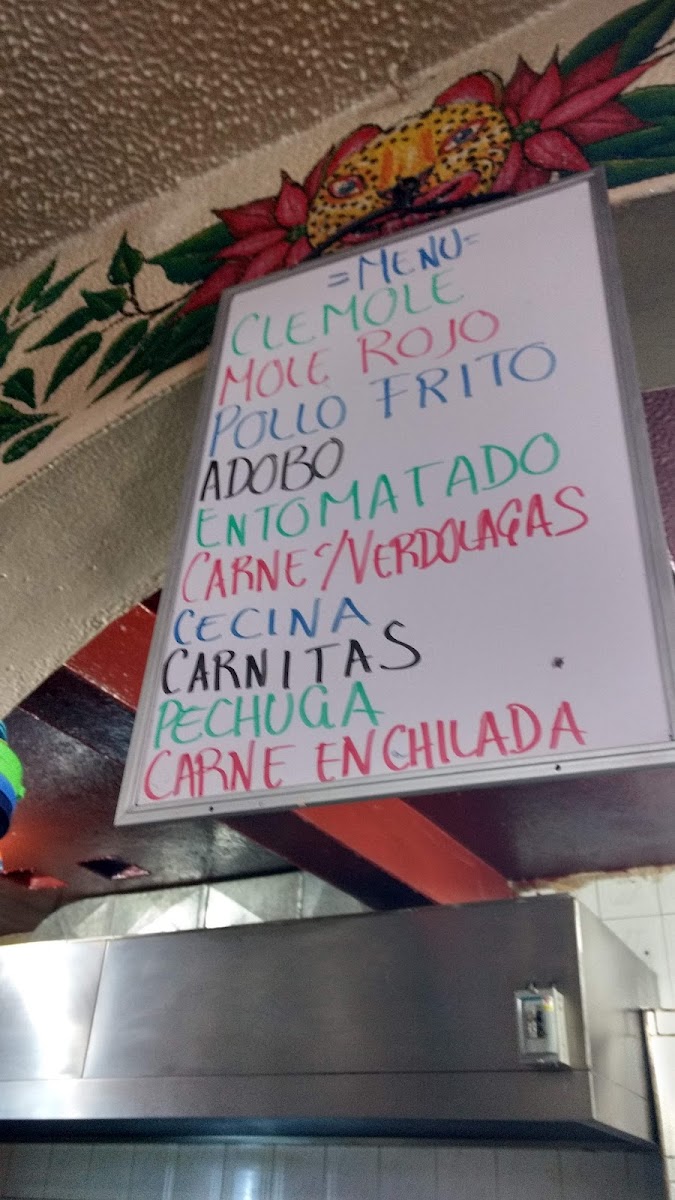 =MENU=
CLEMOLE
MOLE ROJO
POLLO FRITO
ADOBO
ENTOMATADO
CARNE C/VERDOLAGAS
CECINA
CARNITAS
PECHUGA
CARNE ENCHILADA